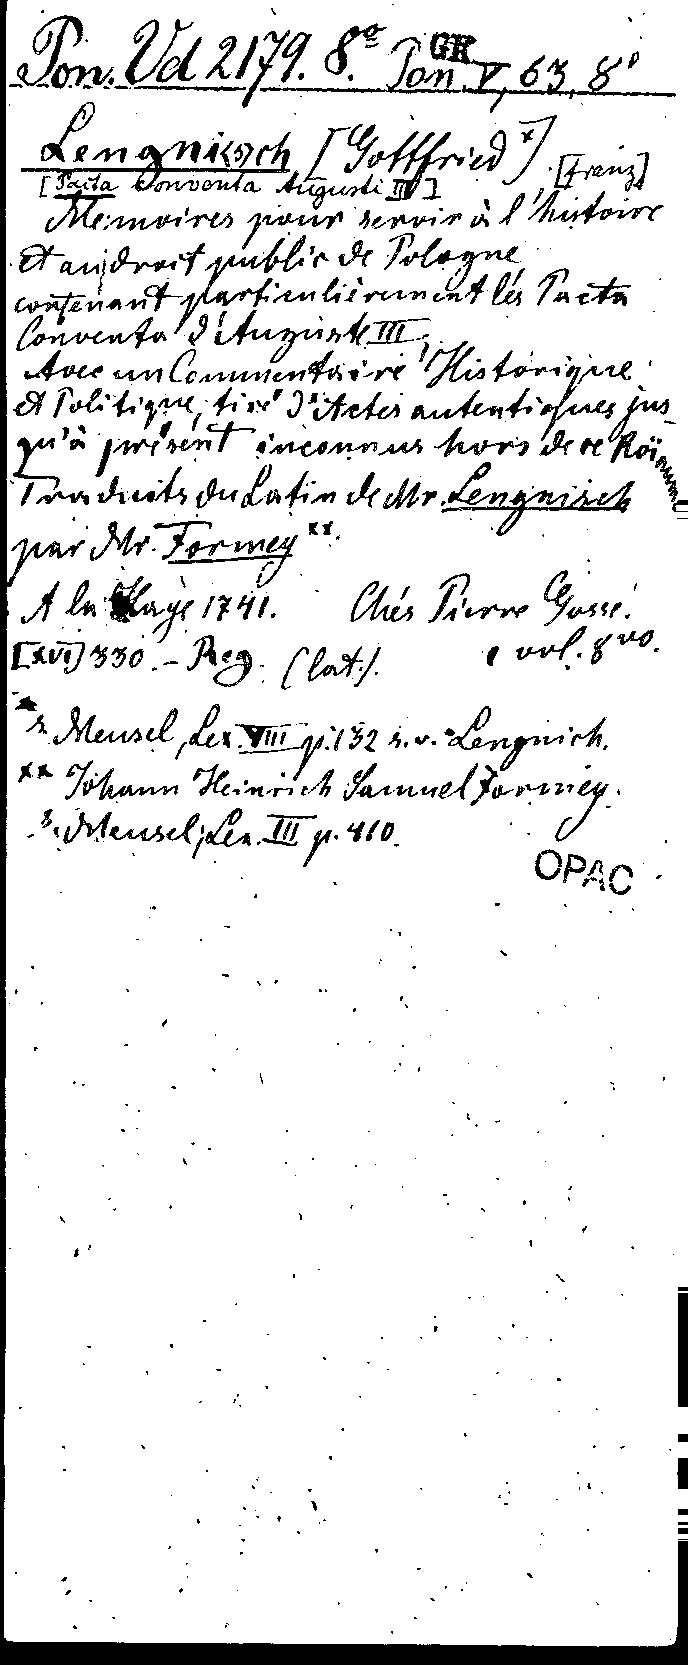 Pon. Vd 2179. 8.º Pon. V, 63, 8º
GK
Lengnisch [Gottfried x] [franz]
[Pacta Conventa Augusti III]
Memoires pour servir à l'histoire
et au droit public de Pologne
contenant particulièrement les Pacta
Conventa d'Auguste III,
Avec un Commentaire Historique
et Politique, tiré d'Actes autentiques jus-
qu'à présent inconnus hors de ce Roïaume
Traduits du Latin de Mr. Lengnisch
par Mr. Formey xx.
A la Haye 1741. Chés Pierre Gosse.
[XVI] 330. – Reg. (lat.). 1 vol. 8vo.
x s. Meusel, Lex. VIII p. 132 s. v. Lengnich.
xx Johann Heinrich Samuel Formey.
s. Meusel, Lex. III p. 410.
OPAC